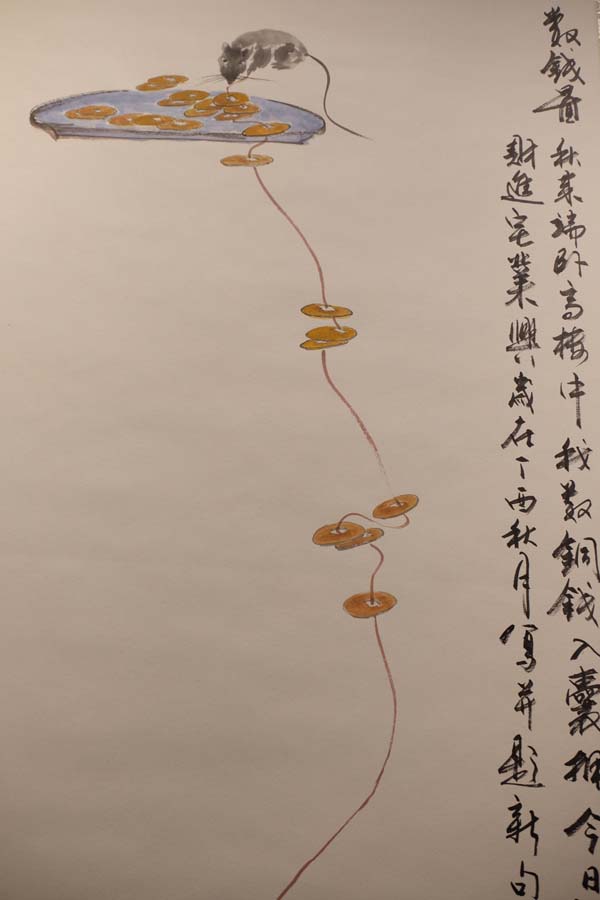 數錢啚 秋来端卧高楼中我數銅錢入囊今日
財進宅業興歲在丁酉秋月寫并題新句